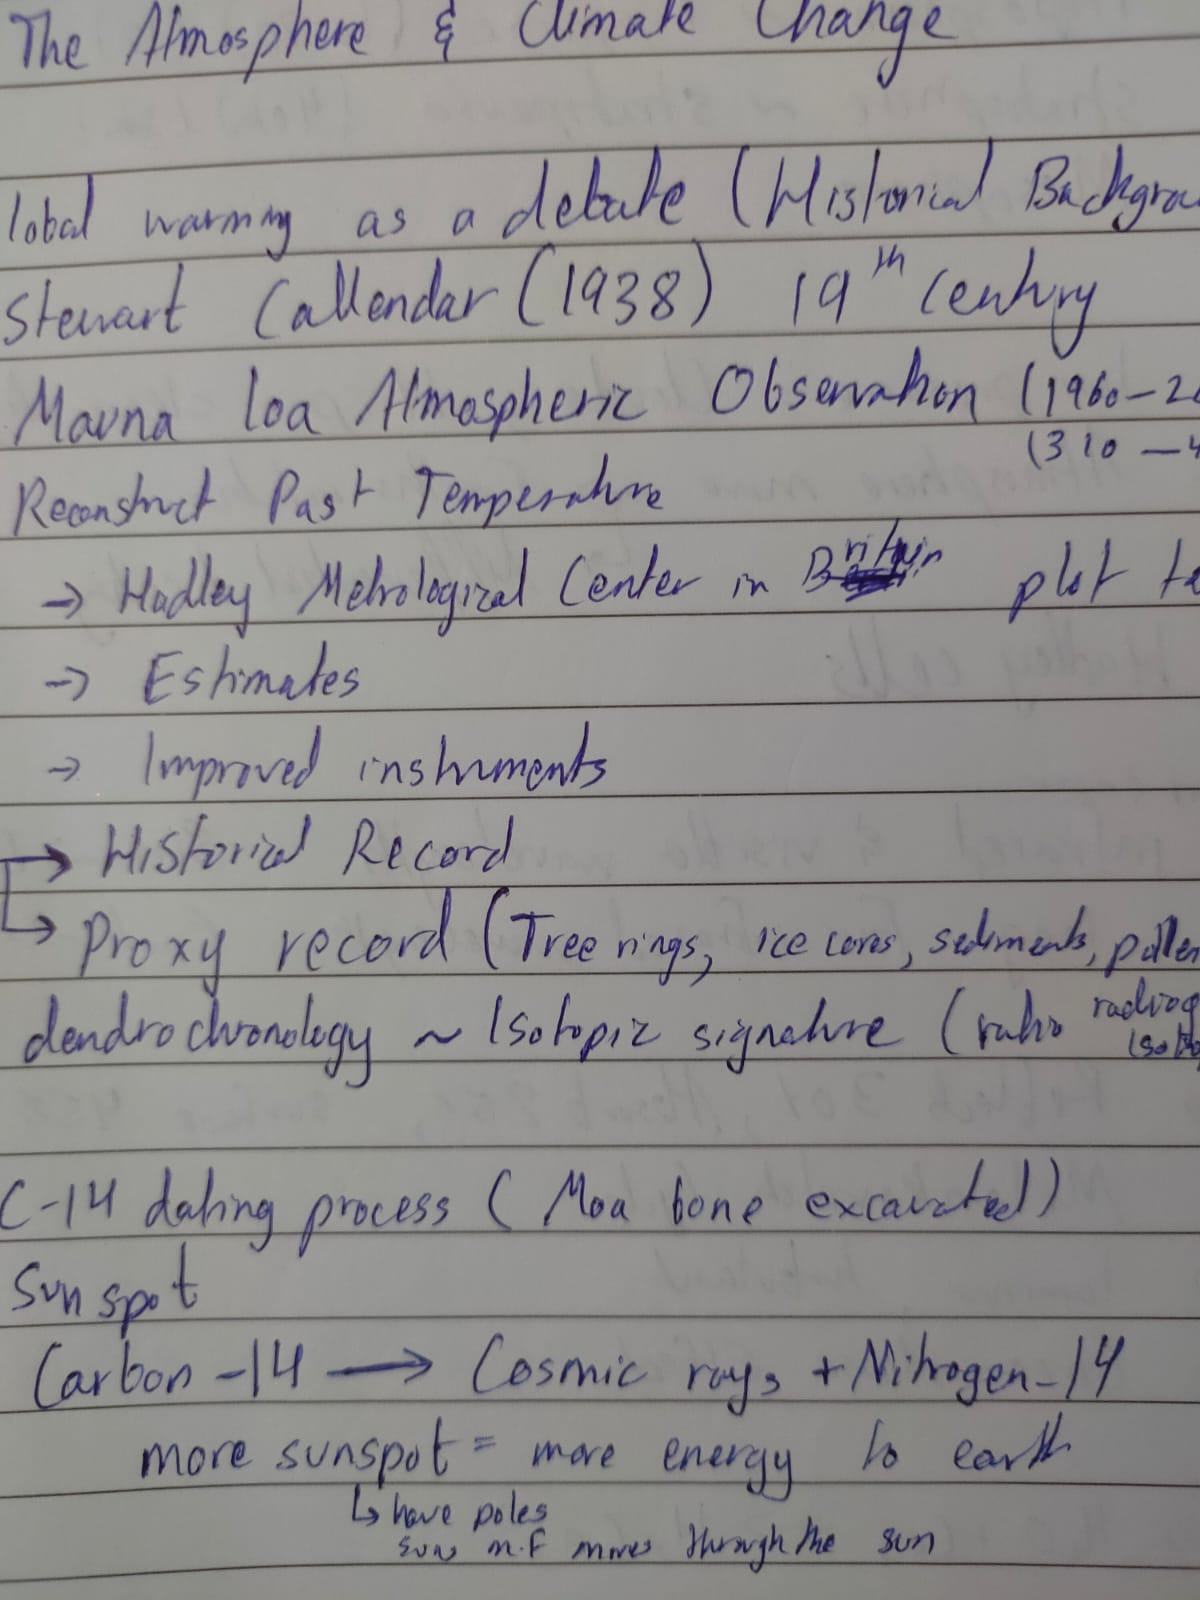 The Atmosphere & Climate Change
lobal warming as a debate (Historical Backgrou
Stewart Callendar (1938) 19th Century
Mauna loa Atmospheric Observation (1960-20
(310 - 4
Reconstruct Past Temperature
→ Hadley Metrological Center in Britain plot te
→ Estimates
→ Improved instruments
→ Historical Record
→ Proxy record (Tree rings, ice cores, sediments, pollen
dendrochronology ~ Isotopic signature (ratio radiog
Isoto
C-14 dating process ( Moa bone excavated)
Sunspot
Carbon-14 → Cosmic rays + Nitrogen-14
more sunspot = more energy to earth
↳ have poles
suns m.F moves through the sun